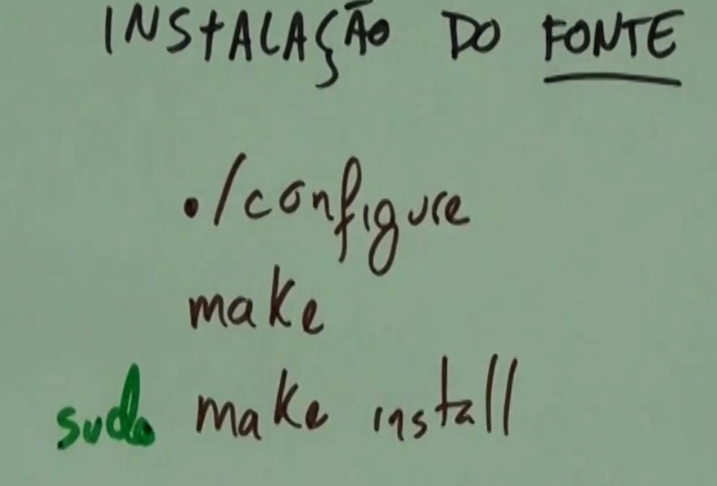 INSTALAÇÃO DO FONTE
./configure
make
sudo make install